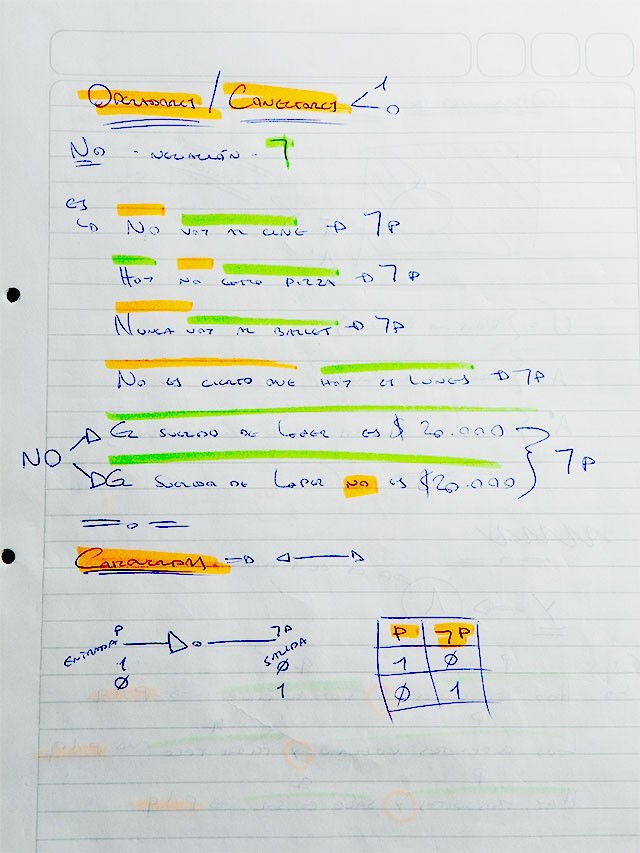 OPERADORES / CONECTORES < 1 0
NO - NEGACIÓN - ¬
EJ
NO VOY AL CINE → ¬P
HOY NO COMO PIZZA → ¬P
NUNCA VOY AL BALLET → ¬P
NO ES CIERTO QUE HOY ES LUNES → ¬P
EL SUELDO DE LOPEZ ES $20.000
NO } ¬P
EL SUELDO DE LOPEZ NO ES $20.000
⇒ ↔
P ¬P
ENTRADA SALIDA
1 Ø
Ø 1
P ¬P
1 Ø
Ø 1